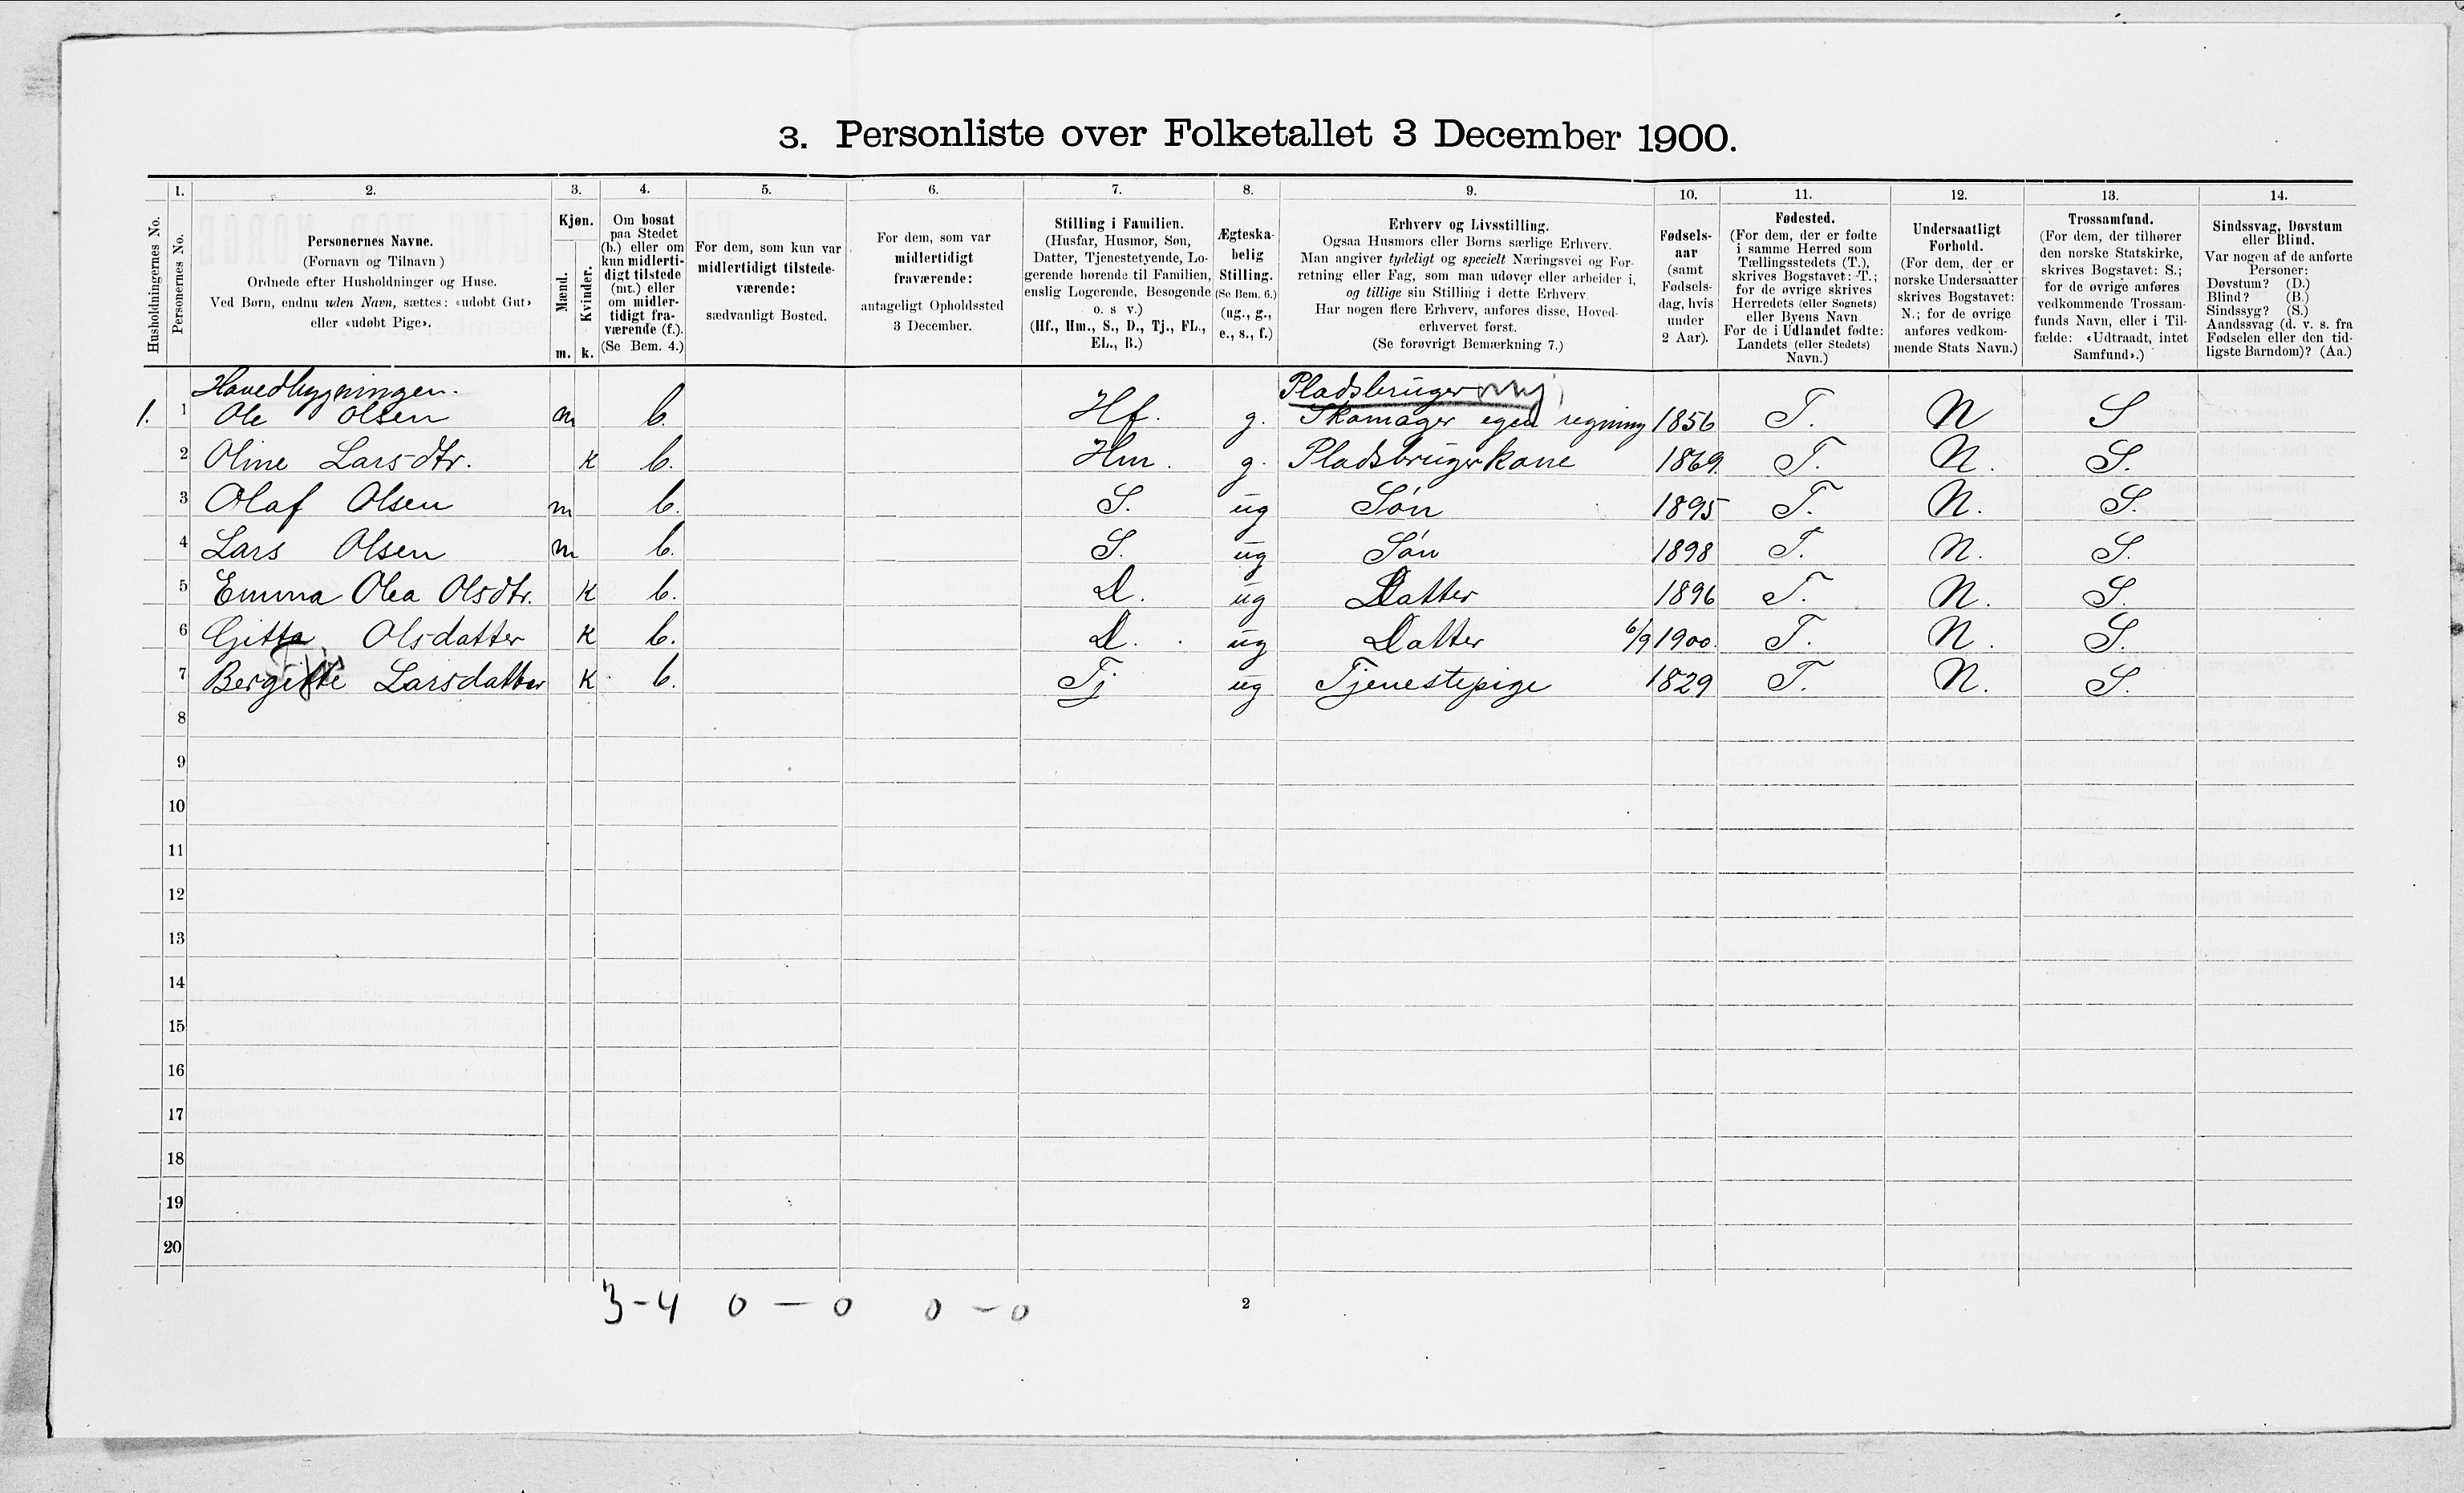 3. Personliste over Folketallet 3 December 1900.
1. 2. 3. 4. 5. 6. 7. 8. 9. 10. 11. 12. 13. 14.
Husholdningernes No.
Personernes No.
Personernes Navne.
(Fornavn og Tilnavn )
Ordnede efter Husholdninger og Huse.
Ved Børn, endnu uden Navn, sættes: «udøbt Gut»
eller «udøbt Pige».
Kjøn.
Mænd.
Kvinder.
m. k.
Om bosat
paa Stedet
(b.) eller om
kun midlerti-
digt tilstede
(mt.) eller
om midler-
tidigt fra-
værende (f.).
(Se Bem. 4.)
For dem, som kun var
midlertidigt tilstede-
værende:
sædvanligt Bosted.
For dem, som var
midlertidigt
fraværende:
antageligt Opholdssted
3 December.
Stilling i Familien.
(Husfar, Husmor, Søn,
Datter, Tjenestetyende, Lo-
gerende hørende til Familien,
enslig Logerende, Besøgende
o. s v.)
(Hf., Hm., S., D., Tj., FL.,
EL., B.)
Ægteska-
belig
Stilling.
(Se Bem. 6.)
(ug., g.,
e., s., f.)
Erhverv og Livsstilling.
Ogsaa Husmors eller Børns særlige Erhverv.
Man angiver tydeligt og specielt Næringsvei og For-
retning eller Fag, som man udøver eller arbeider i,
og tillige sin Stilling i dette Erhverv.
Har nogen flere Erhverv, anføres disse, Hoved-
erhvervet først.
(Se forøvrigt Bemærkning 7.)
Fødsels-
aar
(samt
Fødsels-
dag, hvis
under
2 Aar).
Fødested.
(For dem, der er fødte
i samme Herred som
Tællingsstedets (T.),
skrives Bogstavet: T.;
for de øvrige skrives
Herredets (eller Sognets)
eller Byens Navn
For de i Udlandet fødte:
Landets (eller Stedets)
Navn.)
Undersaatligt
Forhold.
(For dem, der er
norske Undersaatter
skrives Bogstavet:
N.; for de øvrige
anføres vedkom-
mende Stats Navn.)
Trossamfund.
(For dem, der tilhører
den norske Statskirke,
skrives Bogstavet: S.;
for de øvrige anføres
vedkommende Trossam-
funds Navn, eller i Til-
fælde: «Udtraadt, intet
Samfund».)
Sindssvag, Døvstum
eller Blind.
Var nogen af de anførte
Personer:
Døvstum? (D.)
Blind? (B.)
Sindssyg? (S.)
Aandssvag (d. v. s. fra
Fødselen eller den tid-
ligste Barndom)? (Aa.)
Hovedbygningen. Pladsbruger
1. 1 Ole Olsen m b. Hf. g. Skomager egen regning 1856 T. N S
2 Oline Larsdtr. k b. Hm. g. Pladsbrugerkone 1869. T. N. S.
3 Olaf Olsen m b. S. ug Søn 1895 T. N. S.
4 Lars Olsen m b. S. ug Søn 1898 T. N. S.
5 Emma Olea Olsdtr. k b. D. ug Datter 1896 T. N. S.
6 Gitta Olsdatter k b. D. ug Datter 6/9 1900. T. N. S.
7 Bergitte Larsdatter k b. Tj ug Tjenestepige 1829 T. N. S.
8
9
10
11
12
13
14
15
16
17
18
19
20
3-4 0 — 0 0 - 0 2